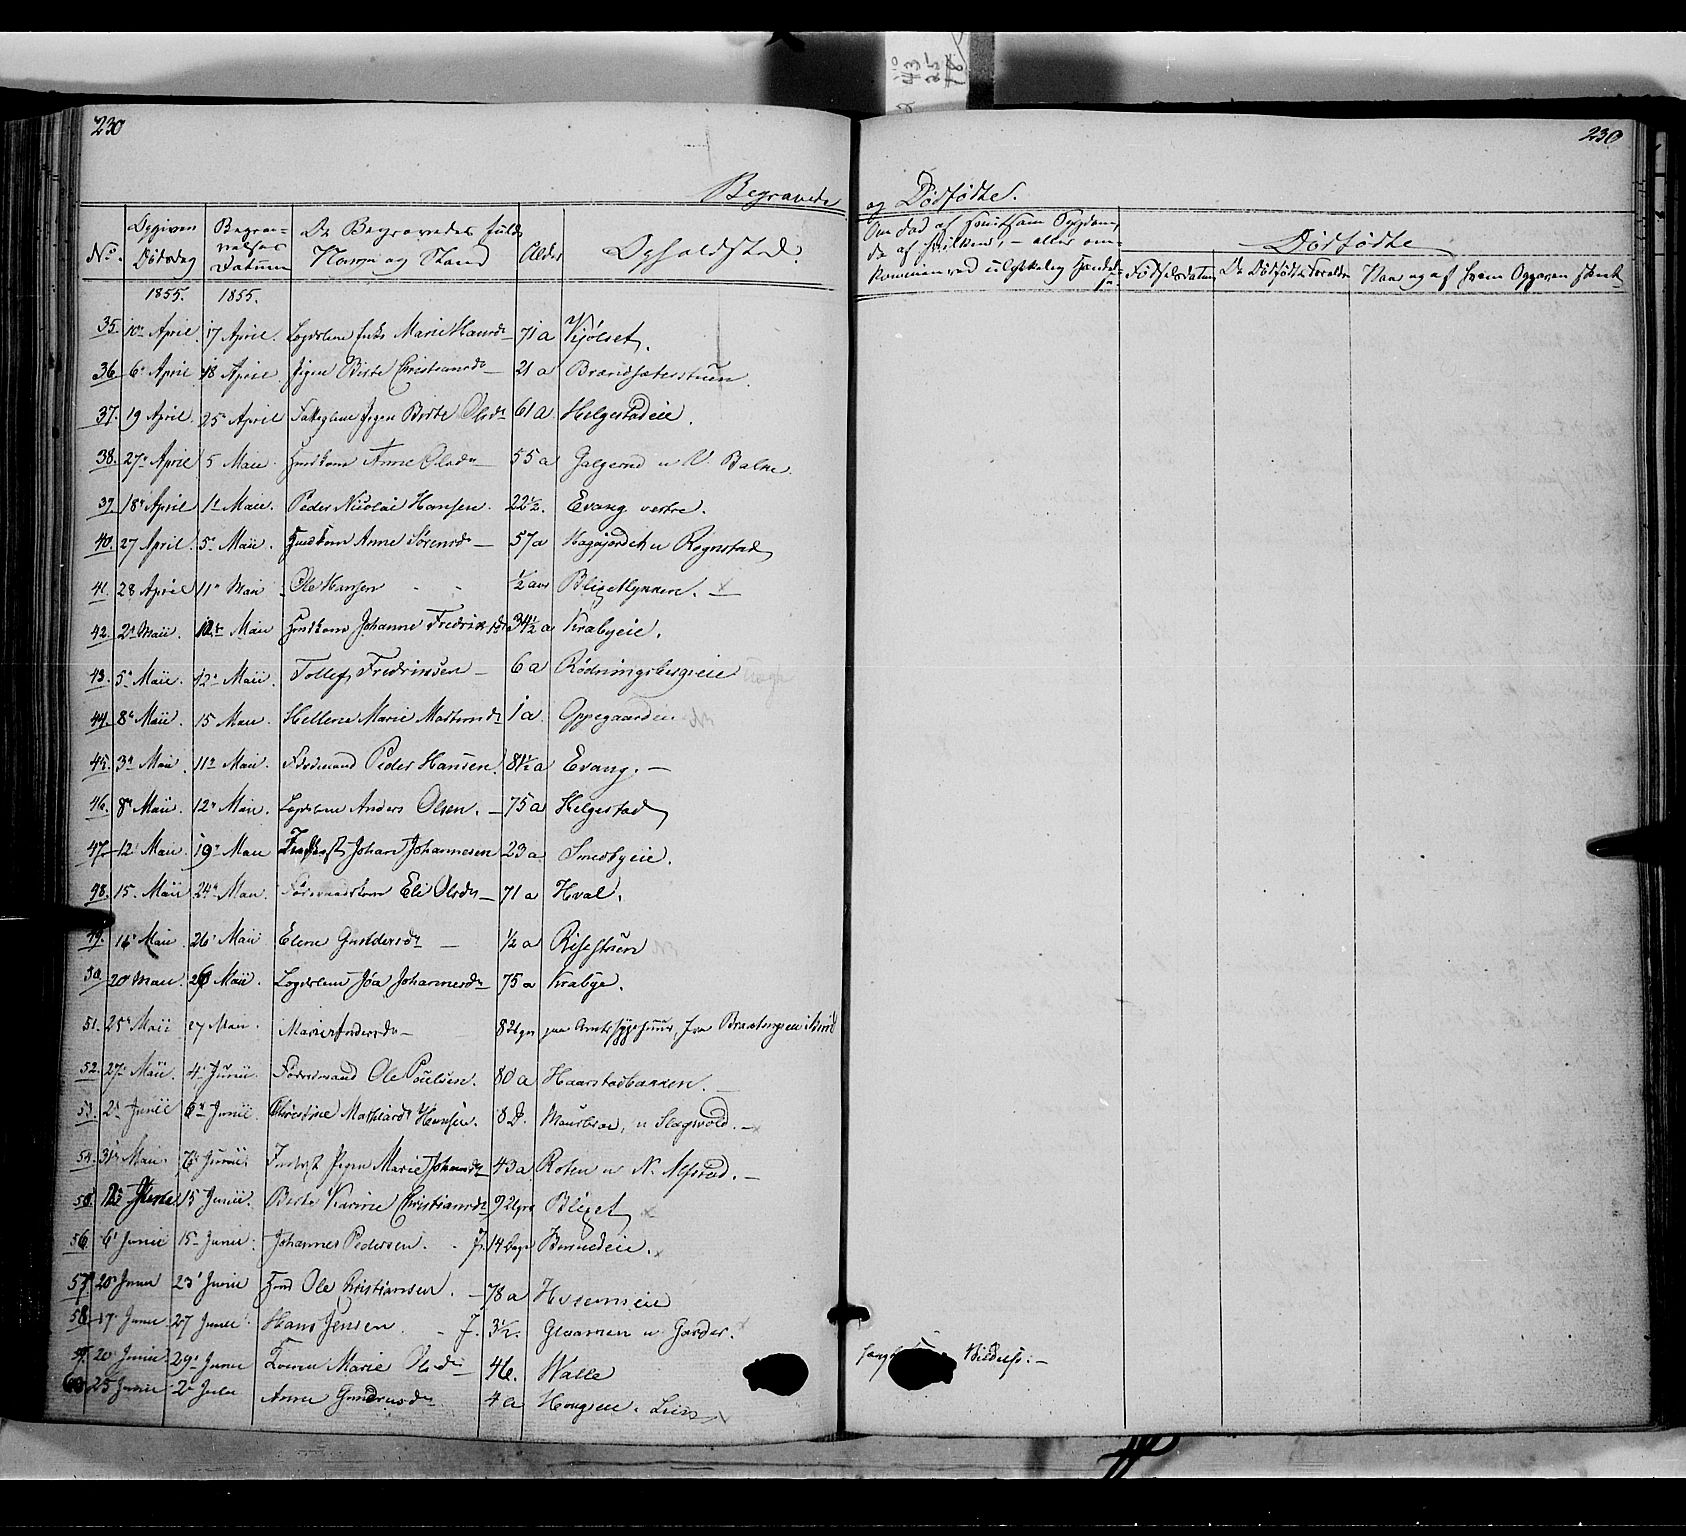 230
230
Begravede
og Dødfødte.
No.
Opgiven Dødsdag
Begravelses Datum
De Begravedes fulde Navn og Stand
Alder
Opholdsted.
Om død af smitsom Sygdom, da af hvilken; – eller omkommen ved ulykkelig Hændelse
Dødfødte
Fødselsdatum
De Dødfødtes Forældre
Naar og af hvem Opgaven skeet
1855. 1855.
35. 10de April. 17 April. Lægdslem Enke Marie Hansdr 71 a Kjølset.
36. 6 April 18 April. Pigen Birte Christiansdr 21 a Brændsæterstuen.
37. 19 April 25 April Fattiglem Pigen Berte Olsdr 61 a Helgestadeie.
38. 27 April 5 Maii. Huuskone Anne Olsdr 55 a Galgerud u V. Balke.
39. 18 April 1 Maii. Peder Nicolai Hansen. 22 1/2. Evang vestre.
40. 27 April. 5 Maii. Huuskone Anne Sørensdr 57 a Hagajordet u Rognstad
41. 28 April 11 Maii Ole Hansen 1/2 aar Bligetlykken.
42. 2 Maii. 12 Maii Huuskone Johanne Fredriksdr 34 1/2 a Krabyeie.
43. 5 Maii. 12 Maii. Tollef Fredriksen 6 a Rødningsbergeie
44. 8 Maii. 15 Maii. Hellene Marie Mortensdr 1 a. Oppegaardeie
45. 3 Maii. 11 Maii. Føderaad Peder Hansen 81 1/2 a Evang.
46. 8 Maii. 12 Maii. Lægdslem Anders Olsen. 75 a Helgestad
47. 12 Maii. 19 Maii Inderst Johan Johannesen 23 a. Smedbyeie.
48. 15. Maii 24 Maii. Føderaadskone Eli Olsdr 71 a Hval.
49. 16 Maii 26 Maii Elene Guldersdr 1/2 a Risestuen
50. 20 Maii 26 Maii. Lægdslem Jóa Johannesdr 75 a Krabye.
51. 25 Maii 27 Maii. Marie Andersdr 82 paa Amtssygehuus, fra Brastengeie i Birid
52. 27 Maii. 4 Junii. Føderaad Ole Poulsen. 80 a Haarstadbakken.
53. 2 Junii 6 Junii. Christine Mathiasdr Hansen. 8 D. Maurbroe, u Slagsvold.
54. 31 Maii. 7 Junii. Inderst Pigen Marie Johansdr 43 a Roten u N. Alfstad.
55. 12 Junii 15 Junii. Berte Karine Christiansdr 9 Uger Bliget
56 6 Junii 15 Junii. Johannes Pedersen. J. 14 Dage Burudeie.
57 20 Junii 23 Junii Huusmd Ole Christiansen. 78 a Husemeie
58 17 Junii 27 Junii Hans Jensen. J. 3 1/2. Glaamen u. Garder.
59. 20 Junii 29 Junii Lovise Marie Olsdr 46. Walle
60. 25 Junii 2 Julii Anne Gundersdr 4 a Hongeie.